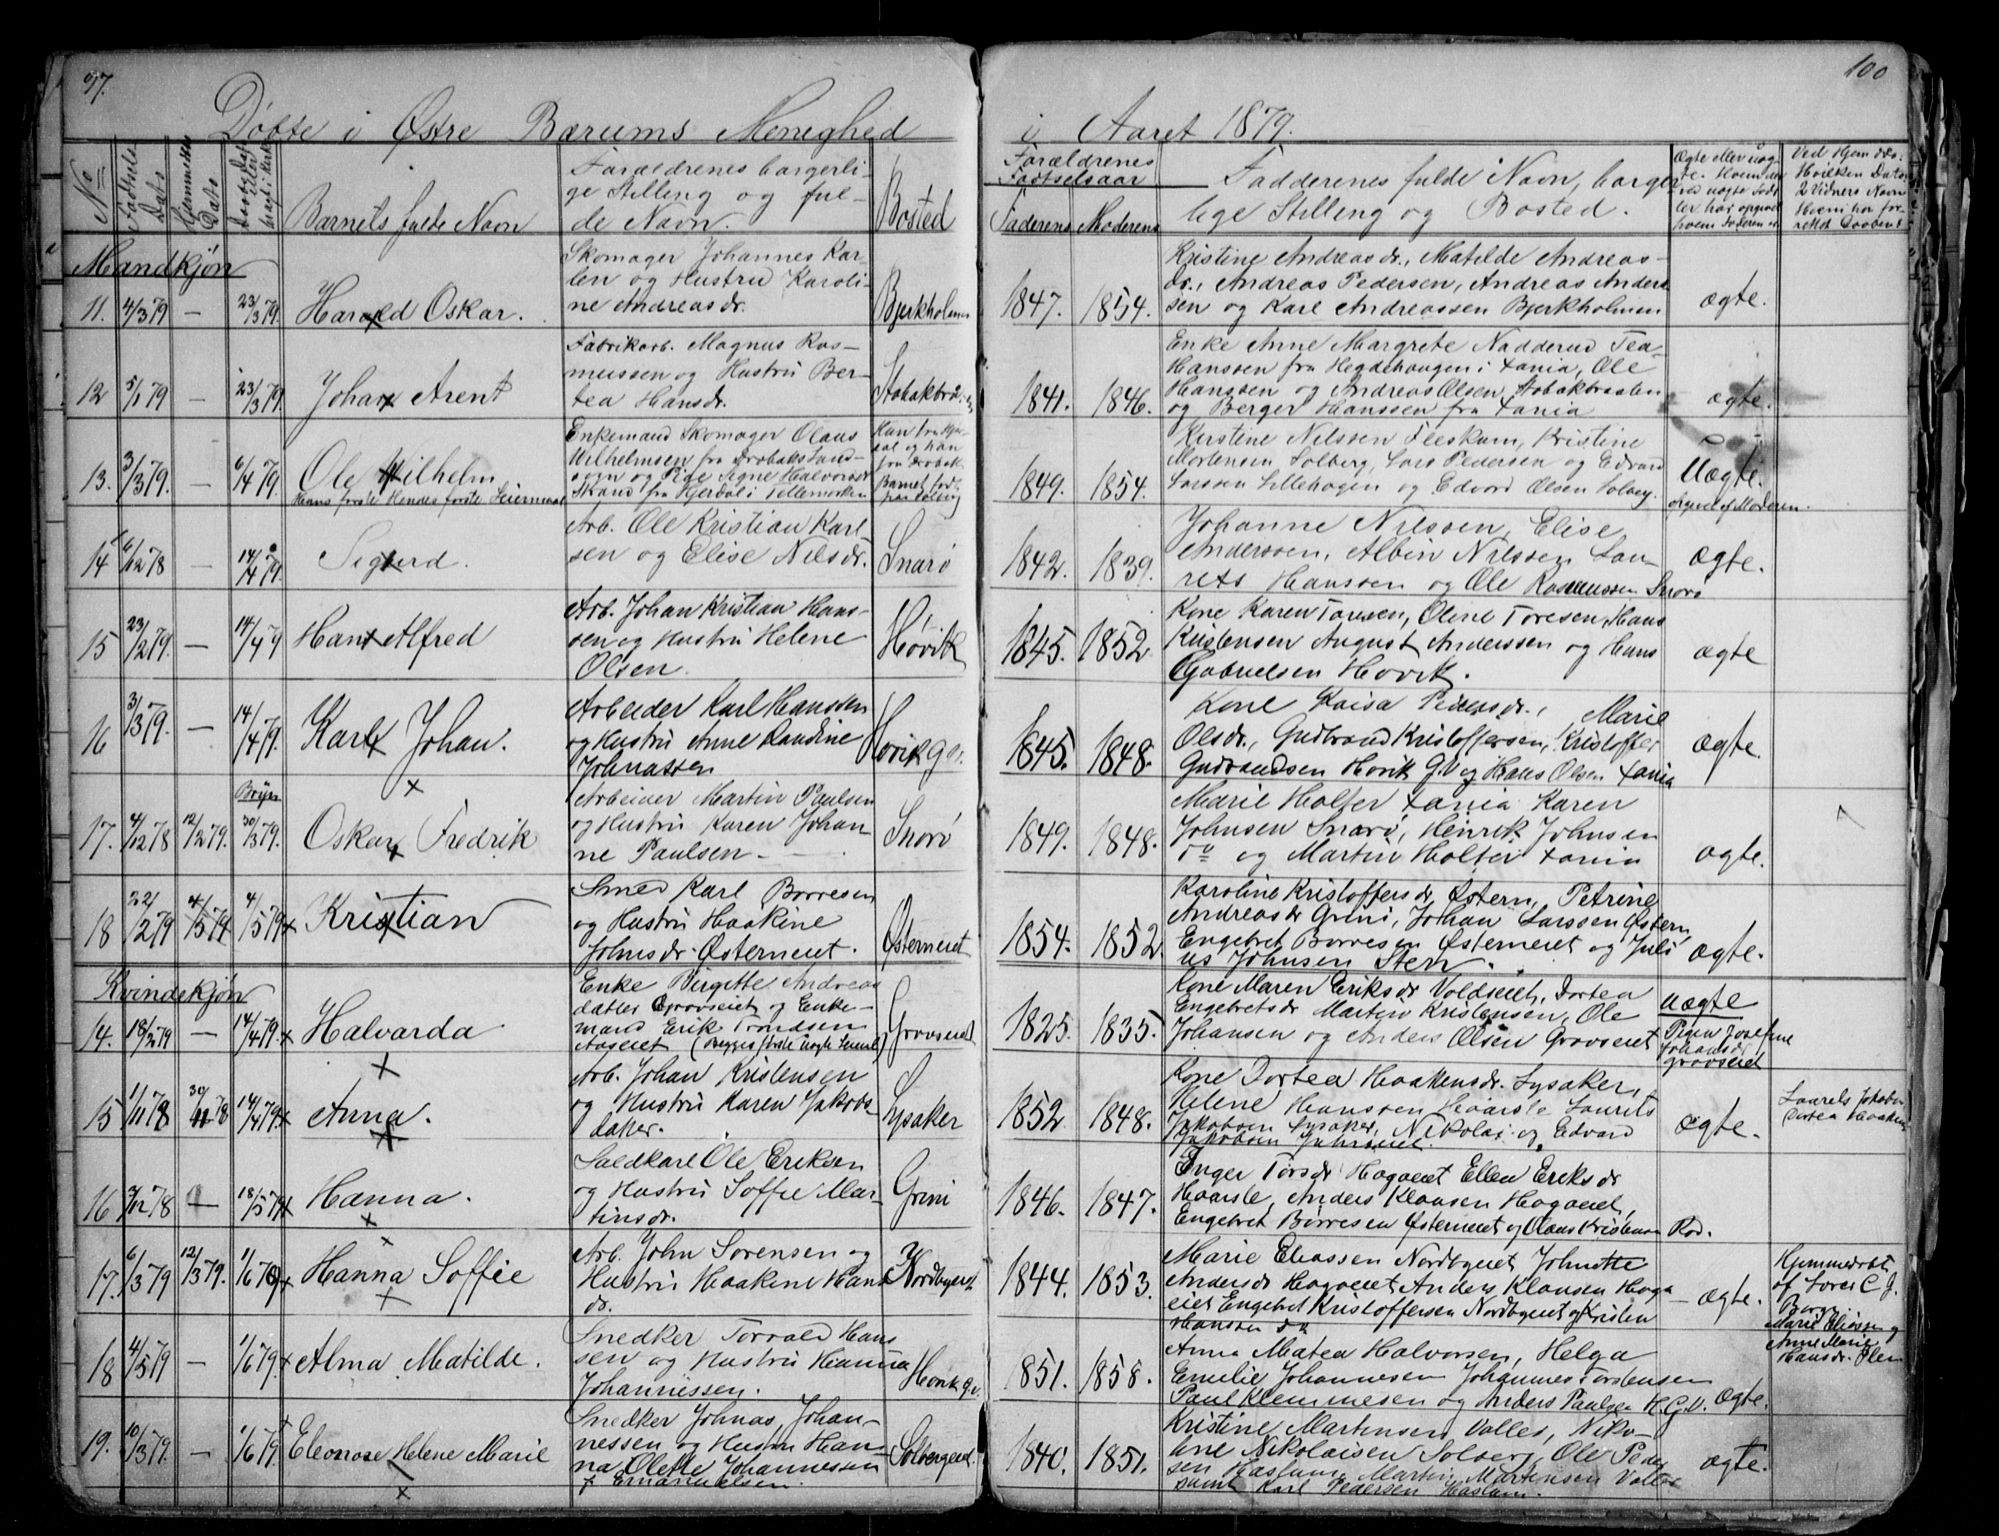 97.
100
Døbte i Østre Bærums Menighed
i Aaret 1879.
No
Fødsels Dato
Hjemmedøbt Dato
Barnets fulde Navn
Forældrenes borgerli-
ge Stilling og ful-
de Navn.
Bosted
Forældrenes
Fødselsaar
Faderens Moderens
Fadderenes fulde Navn, borger-
lige Stilling og Bosted.
Mandkjøn
11. 4/3 79 — 23/3 79. Harald Oskar.
Skomager Johannes Kar-
len og Hustru Karoli-
ne Andreasdr.
Bjerkholmen
1847. 1854.
Kristine Andreasdr., Matilde Andreas-
dr., Andreas Pedersen, Andreas Anders
sen og Karl Andreassen Bjerkholmen
ægte.
12 5/1 79 — 23/3 79. Johan Arent
Fabrikarb. Magnus Ras-
mussen og Hustru Ber-
tea Hansdr.
1841. 1846.
Enke Anne Margrete Nadderud Tea
Hanssen fra Hegdehaugen i Xania, Ole
Hanssen og Andreas Olsen Stabækbraaten
og Berger Hanssen fra Xania
ægte.
13. 3/3 79. — 6/4 79. Ole Wilhelm
Hans første Hendes første Leiermaal
Enkemand Skomager Olaus
Wilhelmsen fra Drøbaks Land-
sogn og Pige Signe Halvorsdr
Skand fra Hjerdal i Tellemarken
1849. 1854.
Kirstine Nilssen Fleskum, Kristine
Mortensen Solberg, Lars Pedersen og Edvard
Larssen Lillehagen og Edvard Olsen Solberg.
Uægte.
opgivet af Moderen.
14 6/12 78 — 14/4 79. Sigurd.
Arb. Ole Kristian Karl
sen og Elise Nilsdr.
Snarø
1842. 1839.
Johanne Nilssen, Elise
Anderssen, Albin Nilssen Lau-
rits Hanssen og Ole Rasmussen Snarø
ægte.
15 23/2 79. — 14/4 79 Hans Alfred
Arb. Johan Kristian Hans-
sen og Hustru Helene
Olsen.
Høvik
1845. 1852.
Kone Karen Torsen, Oline Toresen, Hans
Kristensen August Anderssen og Hans
Gabrielsen Høvik.
ægte
16 3/3 79. — 14/4 79. Karl Johan.
Arbeider Karl Hanssen
og Hustru Anne Laudine
Johnassen
Høvik
1845. 1848.
Kone Kaisa Pedersdr., Marie
Olsdr., Gudbrand Kristoffersen, Kristoffer
Gudbrandsen Høvik G.V og Hans Olsen Xania
ægte.
17. 4/12 78 12/2 79. 30/3 79. Oskar Fredrik
Arbeider Martin Paulsen
og Hustru Karen Johan-
ne Paulsen.
Snarø
1849. 1848.
Marie Holter Xania Karen
Johnsen Snarø, Henrik Johnsen
do og Martin Holter Xania
ægte.
18 22/2 79 4/5 79 4/5 79 Kristian
Smed Karl Børresen
og Hustru Haakine
Johnsdr. Østerneiet.
Østerneiet
1854. 1852.
Karoline Kristoffersdr Østern, Petrine
Andreasdr Grini, Johan Larssen Østern,
Engebret Børresen Østerneiet og Juli
us Johnsen Sten.
ægte.
Kvindekjøn
14. 18/2 79 — 14/4 79. Halvarda
Enke Birgitte Andreas
datter Grovseiet og Enke-
mand Erik Trondsen
Aaseiet (Begges første uægte
Grovseiet
1825. 1835.
Kone Maren Eriksdr Voldseiet, Dortea
Engebretsdr Martin Kristensen, Ole
Johansen og Anders Olsen Grovseiet
uægte
Pigen Josefine
Johansdr
Grovseiet
15 1/11 78 30/11 78 14/4 79 Anna.
Arb. Johan Kristensen
og Hustru Karen Jakobs
datter.
Lysaker
1852. 1848.
Kone Dortea Haakensdr. Lysaker,
Helene Hanssen Haarsle Laurits
Jakobsen Lysaker, Nikolai og Edvard
Jakobsen
ægte.
16 7/12 78 — 18/5 79 Hanna.
Soldkarl Ole Eriksen
og Hustru Soffie Mar-
tinsdr.
Grini
1846. 1847.
Inger Torsdr Hagaeiet Ellen Eriksdr
Haarsle, Anders Klausen Hagaeiet,
Engebret Børresen Østerneiet og Olaus Kristensen Rød.
17. 6/3 79 12/3 79. 1/6 79 Hanna Soffie
Arb. John Sørensen og
Hustru Haakine Hans
dr.
1844. 1853.
Marie Eliassen Nordbyeiet Johnette
Andersdr Hagaeiet Anders Klausen Haga
eiet Engebret Kristoffersen Nordbyeiet og Kristen
Hanssen do
ægte.
Hjemmedøbt
af Lærer C. J.
Berg
Marie Eliassen og
Anne Marie
Hansdr.
18 4/5 79 — 1/6 79. Alma Matilde.
Snedker Torvald Hans
sen og Hustru Hanna
Johannessen.
Høvik G.V.
1851. 1858.
Anna Matea Halvorsen, Helga
Emilie Johannesen Johannes Torstensen
Paul Klemmesen og Anders Paulsen H.G.V.
ægte.
19. 10/3 79. — 1/6 79. Eleonore Helene Marie
Snedker Johnas Johan-
nessen og Hustru Han-
na Olette Johannessen
f. Ernastuelsen.
1840. 1851.
Kristine Martinsen Valler, Niko-
line Nikolaisen Solberg, Ole Peder
sen Haslum, Martin Martinsen Valler
samt Karl Pedersen Haslum.
ægte.